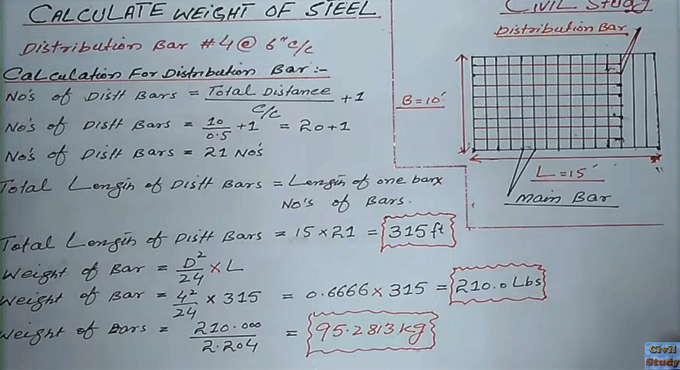 CALCULATE WEIGHT OF STEEL
Distribution Bar #4 @ 6" c/c
Calculation For Distribution Bar:-
No's of Distt Bars = Total Distance / c/c + 1
No's of Distt Bars = 10 / 0.5 + 1 = 20+1
No's of Distt Bars = 21 No's
Total Length of Distt Bars = Length of one bar x
No's of Bars.
Total Length of Distt Bars = 15 x 21 = 315 ft
Weight of Bar = D² / 24 x L
Weight of Bar = 4² / 24 x 315 = 0.6666 x 315 = 210.0 Lbs
Weight of Bars = 210.000 / 2.204 = 95.2813 kg
Civil Study
Distribution Bar
B = 10'
L = 15'
Main Bar
Civil
Study